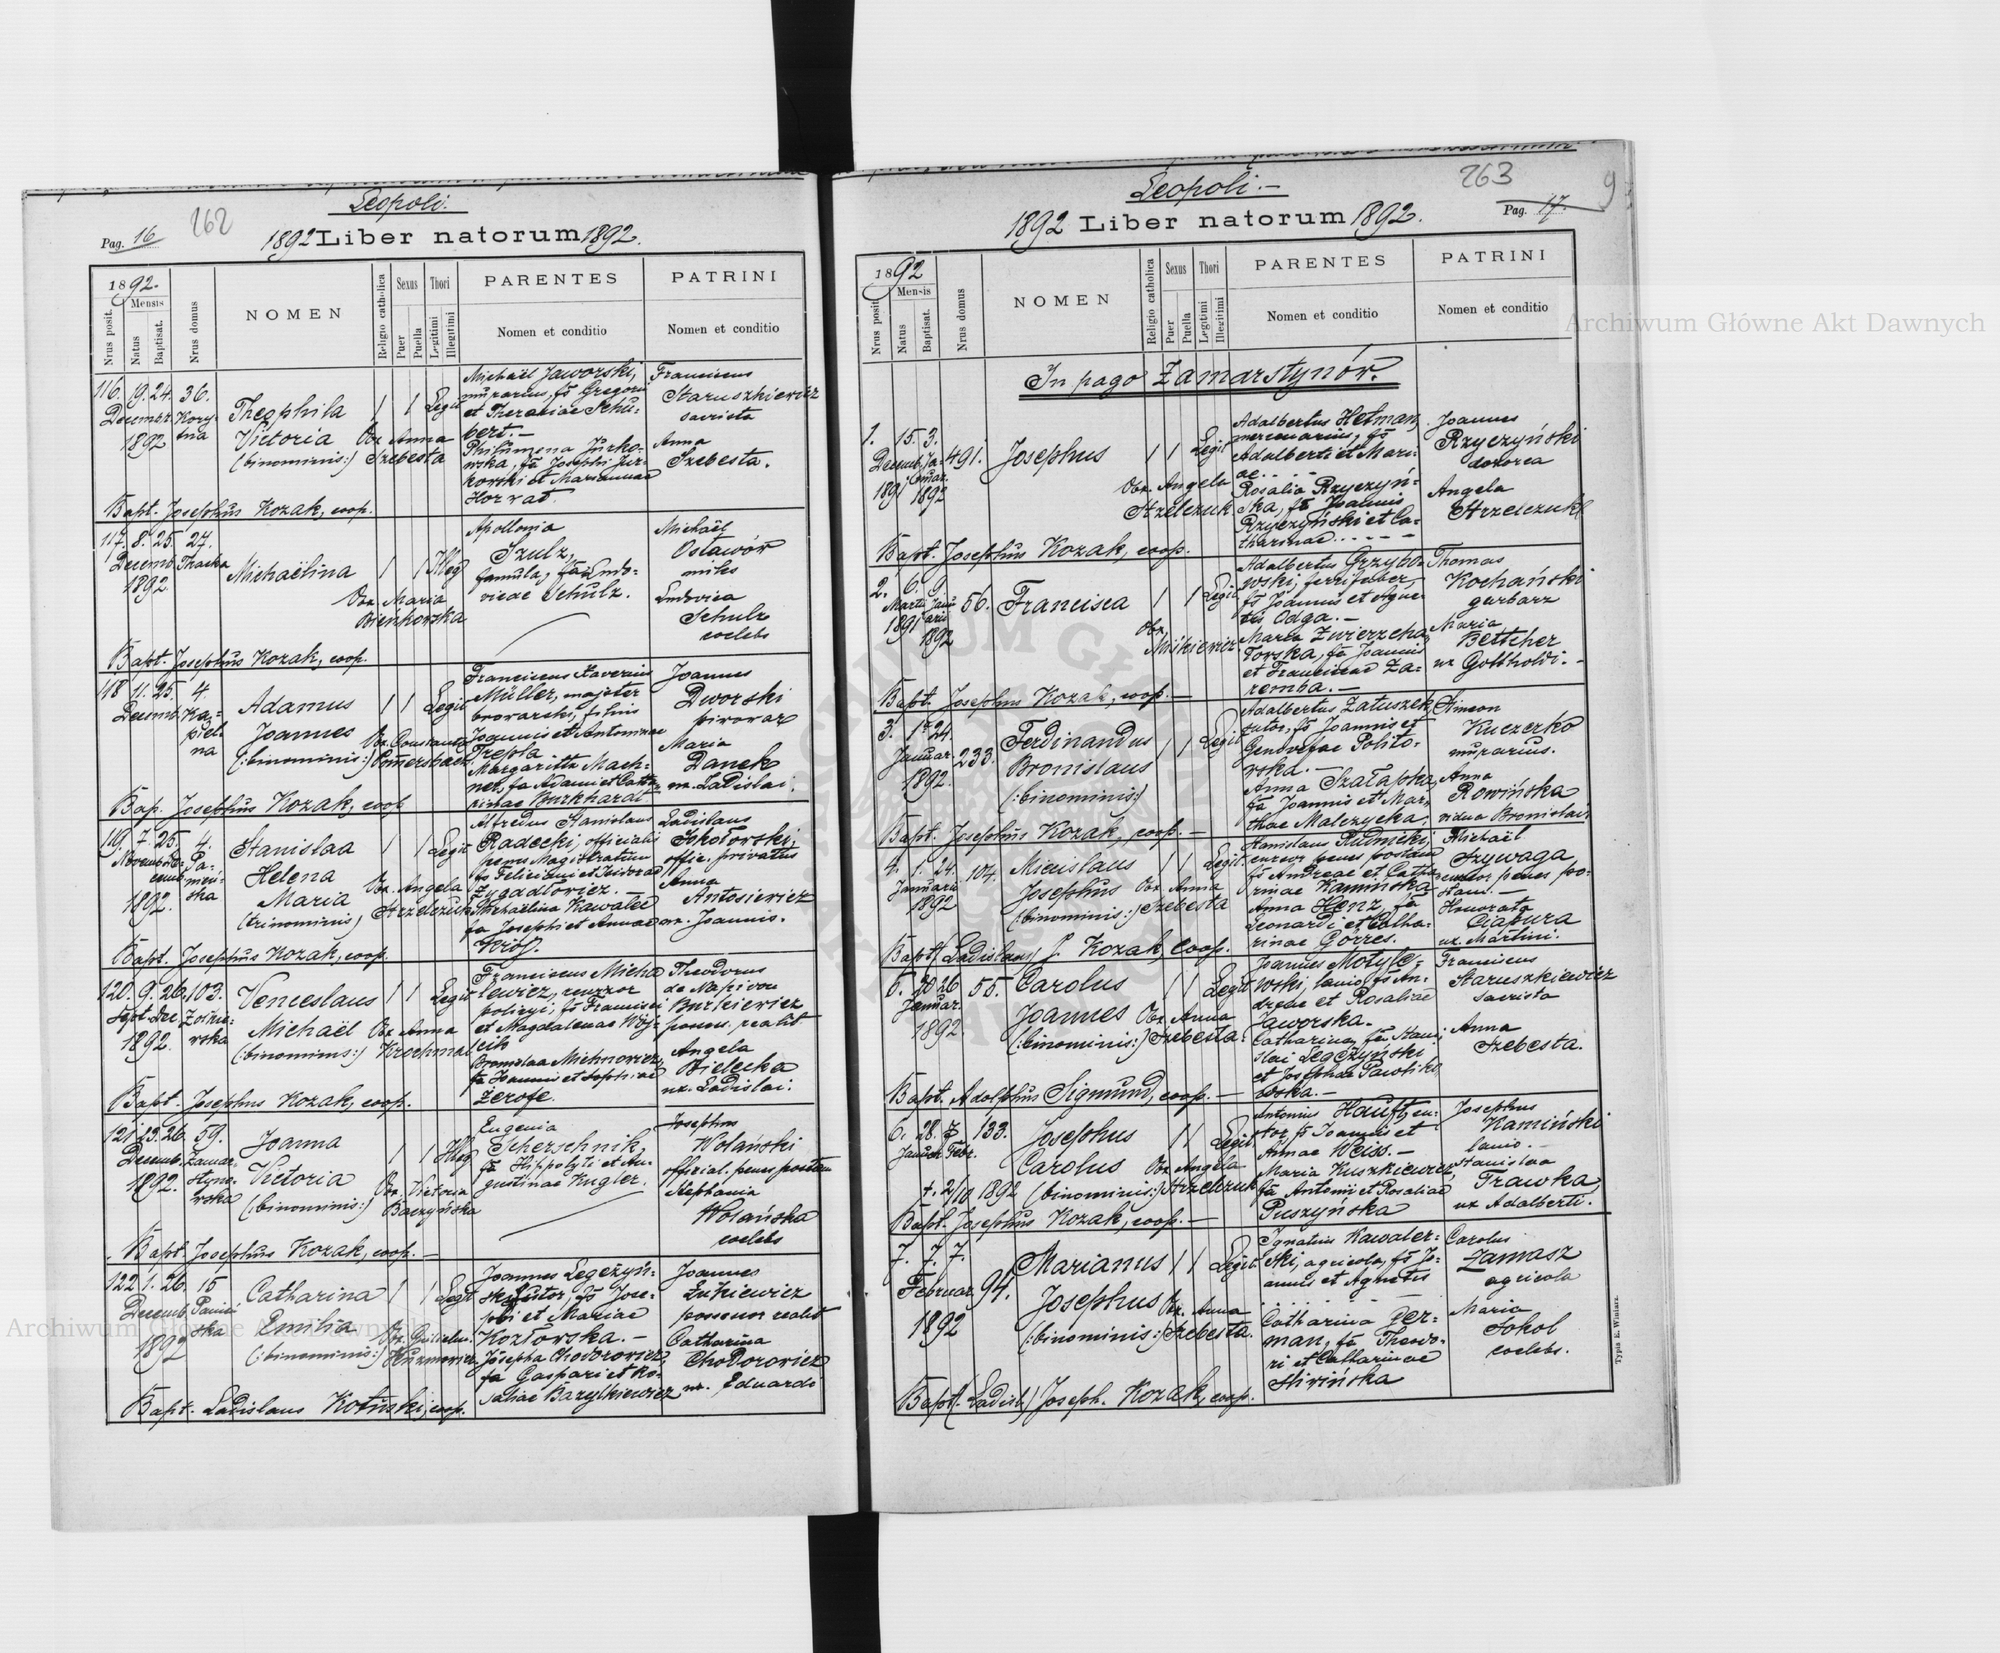 Leopoli.
262
Pag. 16
1892 Liber natorum 1892.
1892.
Mensis
Nrus posit.
Natus
Baptisat.
Nrus domus
NOMEN
Religio catholica
Sexus
Puer
Puella
Thori
Legitimi
Illegitimi
PARENTES
Nomen et conditio
PATRINI
Nomen et conditio
116. 19. 24. 36.
Decembr. Kory-
1892 tna
Theophila
Victoria
(binominis:)
1 1 Legit
Obx Anna
Szebesta
Michaël Jaworski,
murarius, fs Gregorii
et Theresiae Schu-
bert.-
Philumena Jurko-
wska, fa Josephi Jur-
kowski et Mariannae
Horvat
Franciscus
Staruszkiewicz
sacrista
Anna
Szebesta.
Bapt. Josephus Kozak, coop.
117. 8. 25. 27.
Decemb. Tkacka
1892.
Michaëlina
1 1 Illeg
Obx. Maria
Bieńkowska
Apollonia
Szulz,
famula, fa Ludo-
vicae Schulz.
Michaël
Ostawór
miles
Ludovica
Schulz
coelebs
Bapt. Josephus Kozak, coop.
118 11. 25. 4.
Decemb. Ka-
piel-
na
Adamus
Joannes
(:binominis:)
1 1 Legit
Obx. Constantia
Franciscus Xaverius
Müller, majster
browarski, filius
Joannis et Antoninae
Trepla
Margaritta Mach-
ner, fa Adami et Catha-
rinae Burkhardt
Joannes
Dworski
piwowar
Maria
Danek
ux. Ladislai.
Bap. Josephus Kozak, coop
119. 7. 25. 4.
1892.
Stanislaa
Helena
Maria
(trinominis)
1 1 Legit
Obx. Angela
Strzelczuk
Alfredus Stanislaus
Radecki, officialis
penes Magistratum
fs Feliciani et Isidorae
Zygadlowicz.-
Michaëlina Kawalec
fa Josephi et Annae
Król.
Ladislaus
Sokołowski,
offic. privatus
Anna
Antosiewicz
ux. Joannis.
Bapt. Josephus Kozak, coop.
120. 9. 26. 103.
Sept. Dec. Zolkie-
1892. wska
Venceslaus
Michaël
(:binominis:)
1 1 Legit
Obx Anna
Krochmal
Franciscus Micha
lewicz, rewizor
policyi, fs Francisci
et Magdalenae Wój-
cik
Bronislaa Michnowicz,
fa Joannis et Sophiae
Zerofe.
Theodorus
de Napivon
posses. realit
Angela
Bielecka
ux. Ladislai.
Bapt. Josephus Kozak, coop.
121. 23. 26. 59.
Decemb. Zamar-
1892. styno-
wska
Joanna
Victoria
(:binominis:)
1 1 Illeg
Obx. Victoria
Baczyńska
Eugenia
Scherschnik,
fa Hippolyti et Au-
gustinae Kugler.
Josephus
Wolański
official. penes postam
Stephania
Wolańska
coelebs
Bapt. Josephus Kozak, coop.-
122. 1. 26. 15
Decemb. Panień
1892 ska
Catharina
Emilia
(:binominis:)
1 1 Legit
Joannes Legeżyń-
ski, sutor, fs Jose-
phi et Mariae
Kozłowska.-
Josepha Chodorowicz,
fa Gaspari et Ro-
saliae Bazylkiewicz
Joannes
Żukiewicz
possessor realit
Catharina
Chodorowicz
ux. Eduardi
Bapt. Ladislaus Kotuski, coop.
Leopoli.-
263
9
Pag. 17.
1892 Liber natorum 1892.
1892
Mensis
Nrus posit.
Natus
Baptisat.
Nrus domus
NOMEN
Religio catholica
Sexus
Puer
Puella
Thori
Legitimi
Illegitimi
PARENTES
Nomen et conditio
PATRINI
Nomen et conditio
In pago Zamarstynów.
1. 15. 3.
Decemb. Ja-
1891 nuar.
1892
491.
Josephus
1 1 Legit
Obx. Angela
Strzelczuk
Adalbertus Hetman,
mercenarius, fs
Adalberti et Mari-
ae. . . .
Rosalia Rzyczyń-
ska, fa Joannis
Rzyczyński et Ca-
tharinae. . . . .
Joannes
Rzyczyński
dozorca
Angela
Strzelczuk
Bapt. Josephus Kozak, coop.
2. 6. 9.
Martii Janu
1891 arii
1892
56.
Francisca
1 1 Legit
Obx.
Miśkiewicz
Adalbertus Grzybo-
wski, ferrifaber,
fs Joannis et Agne-
tis Odga.-
Maria Zwierzcha-
łowska, fa Joannis
et Franciscae Za-
remba.-
Thomas
Kochański
garbarz
Maria
Bettcher
ux Gottholdi.-
Bapt. Josephus Kozak, coop.-
3. 1. 24.
Januar.
1892.
233.
Ferdinandus
Bronislaus
(:binominis:)
1 1 Legit
Adalbertus Zatuszek,
sutor, fs Joannis et
Genovefae Polito-
wska.-
Anna Szałapka,
fa Joannis et Mar-
thae Malczycka.
Simeon
Kuczerko
murarius.
Anna
Rowińska
vidua Bronislai
Bapt. Josephus Kozak, coop.-
4. 1. 24. 104.
Januarii
1892
Micislaus
Josephus
(:binominis:)
1 1 Legit.
Obx Anna
Szebesta
Stanislaus Rudnicki,
cursor penes postam
fs Andreae et Catha-
rinae Kamińska
Anna Henz, fa
Leonardi et Catha-
rinae Görres.
Michaël
Szywaga
cursor penes po-
stam.-
Honorata
Ciapura
ux. Martini.
Bapt. (Ladislaus) J. Kozak coop.
5. 20 26 55.
Januar.
1892.
Carolus
Joannes
(:binominis:)
1 1 Legit
Obx Anna
Szebesta.
Joannes Motyle-
wski, lanio, fs An-
dreae et Rosaliae
Jaworska.
Catharina, fa Stani-
slai Legeżyński
et Josephae Pawliko
wska.-
Franciscus
Staruszkiewicz
sacrista
Anna
Szebesta.
Bapt. Adolphus Sigmund, coop.-
6. 28. 7. 133.
Januar Febr.
+. 2/10 1892
Josephus
Carolus
(binominis:)
1 1 Legit
Obx Angela
Strzelczuk
Antonius Hauft, su-
tor fs Joannis et
Annae Weiss.-
Maria Kuszkiewicz,
fa Antonii et Rosaliae
Puszyńska
Josephus
Kamiński
lanio.-
Stanislaa
Trawka,
ux Adalberti.
Bapt. Josephus Kozak, coop.-
7. 7. 7.
Februar.
1892
94.
Marianus
Josephus
(:binominis:)
1 1 Legit
Obx. Anna
Szebesta.
Ignatius Kawaler-
ski, agricola, fs Jo-
annis et Agnetis
. . . . . . .
Catharina Ger-
man, fa Theodo-
ri et Catharinae
Sliwińska
Carolus
Zamasz
agricola
Maria
Sokol
coelebs.
Bapt. (Ladisl.) Joseph. Kozak, coop.
Typis E. Winiarz.
Archiwum Główne Akt Dawnych
Archiwum Główne Akt Dawnych